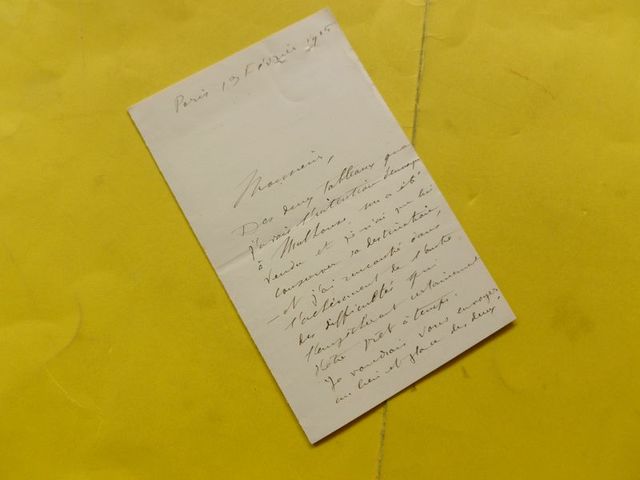 Paris 19 Février 1905
Monsieur,
Des deux tableaux que
j'avais l'intention d'envoyer
à Mulhouse, un a été
vendu et je n'ai pu lui
conserver sa destination,
- et j'ai rencontré dans
l'achèvement de l'autre
des difficultés qui
l'empêcheront certainement
d'être prêt à temps.
Je voudrais vous envoyer
au lieu et place des deux